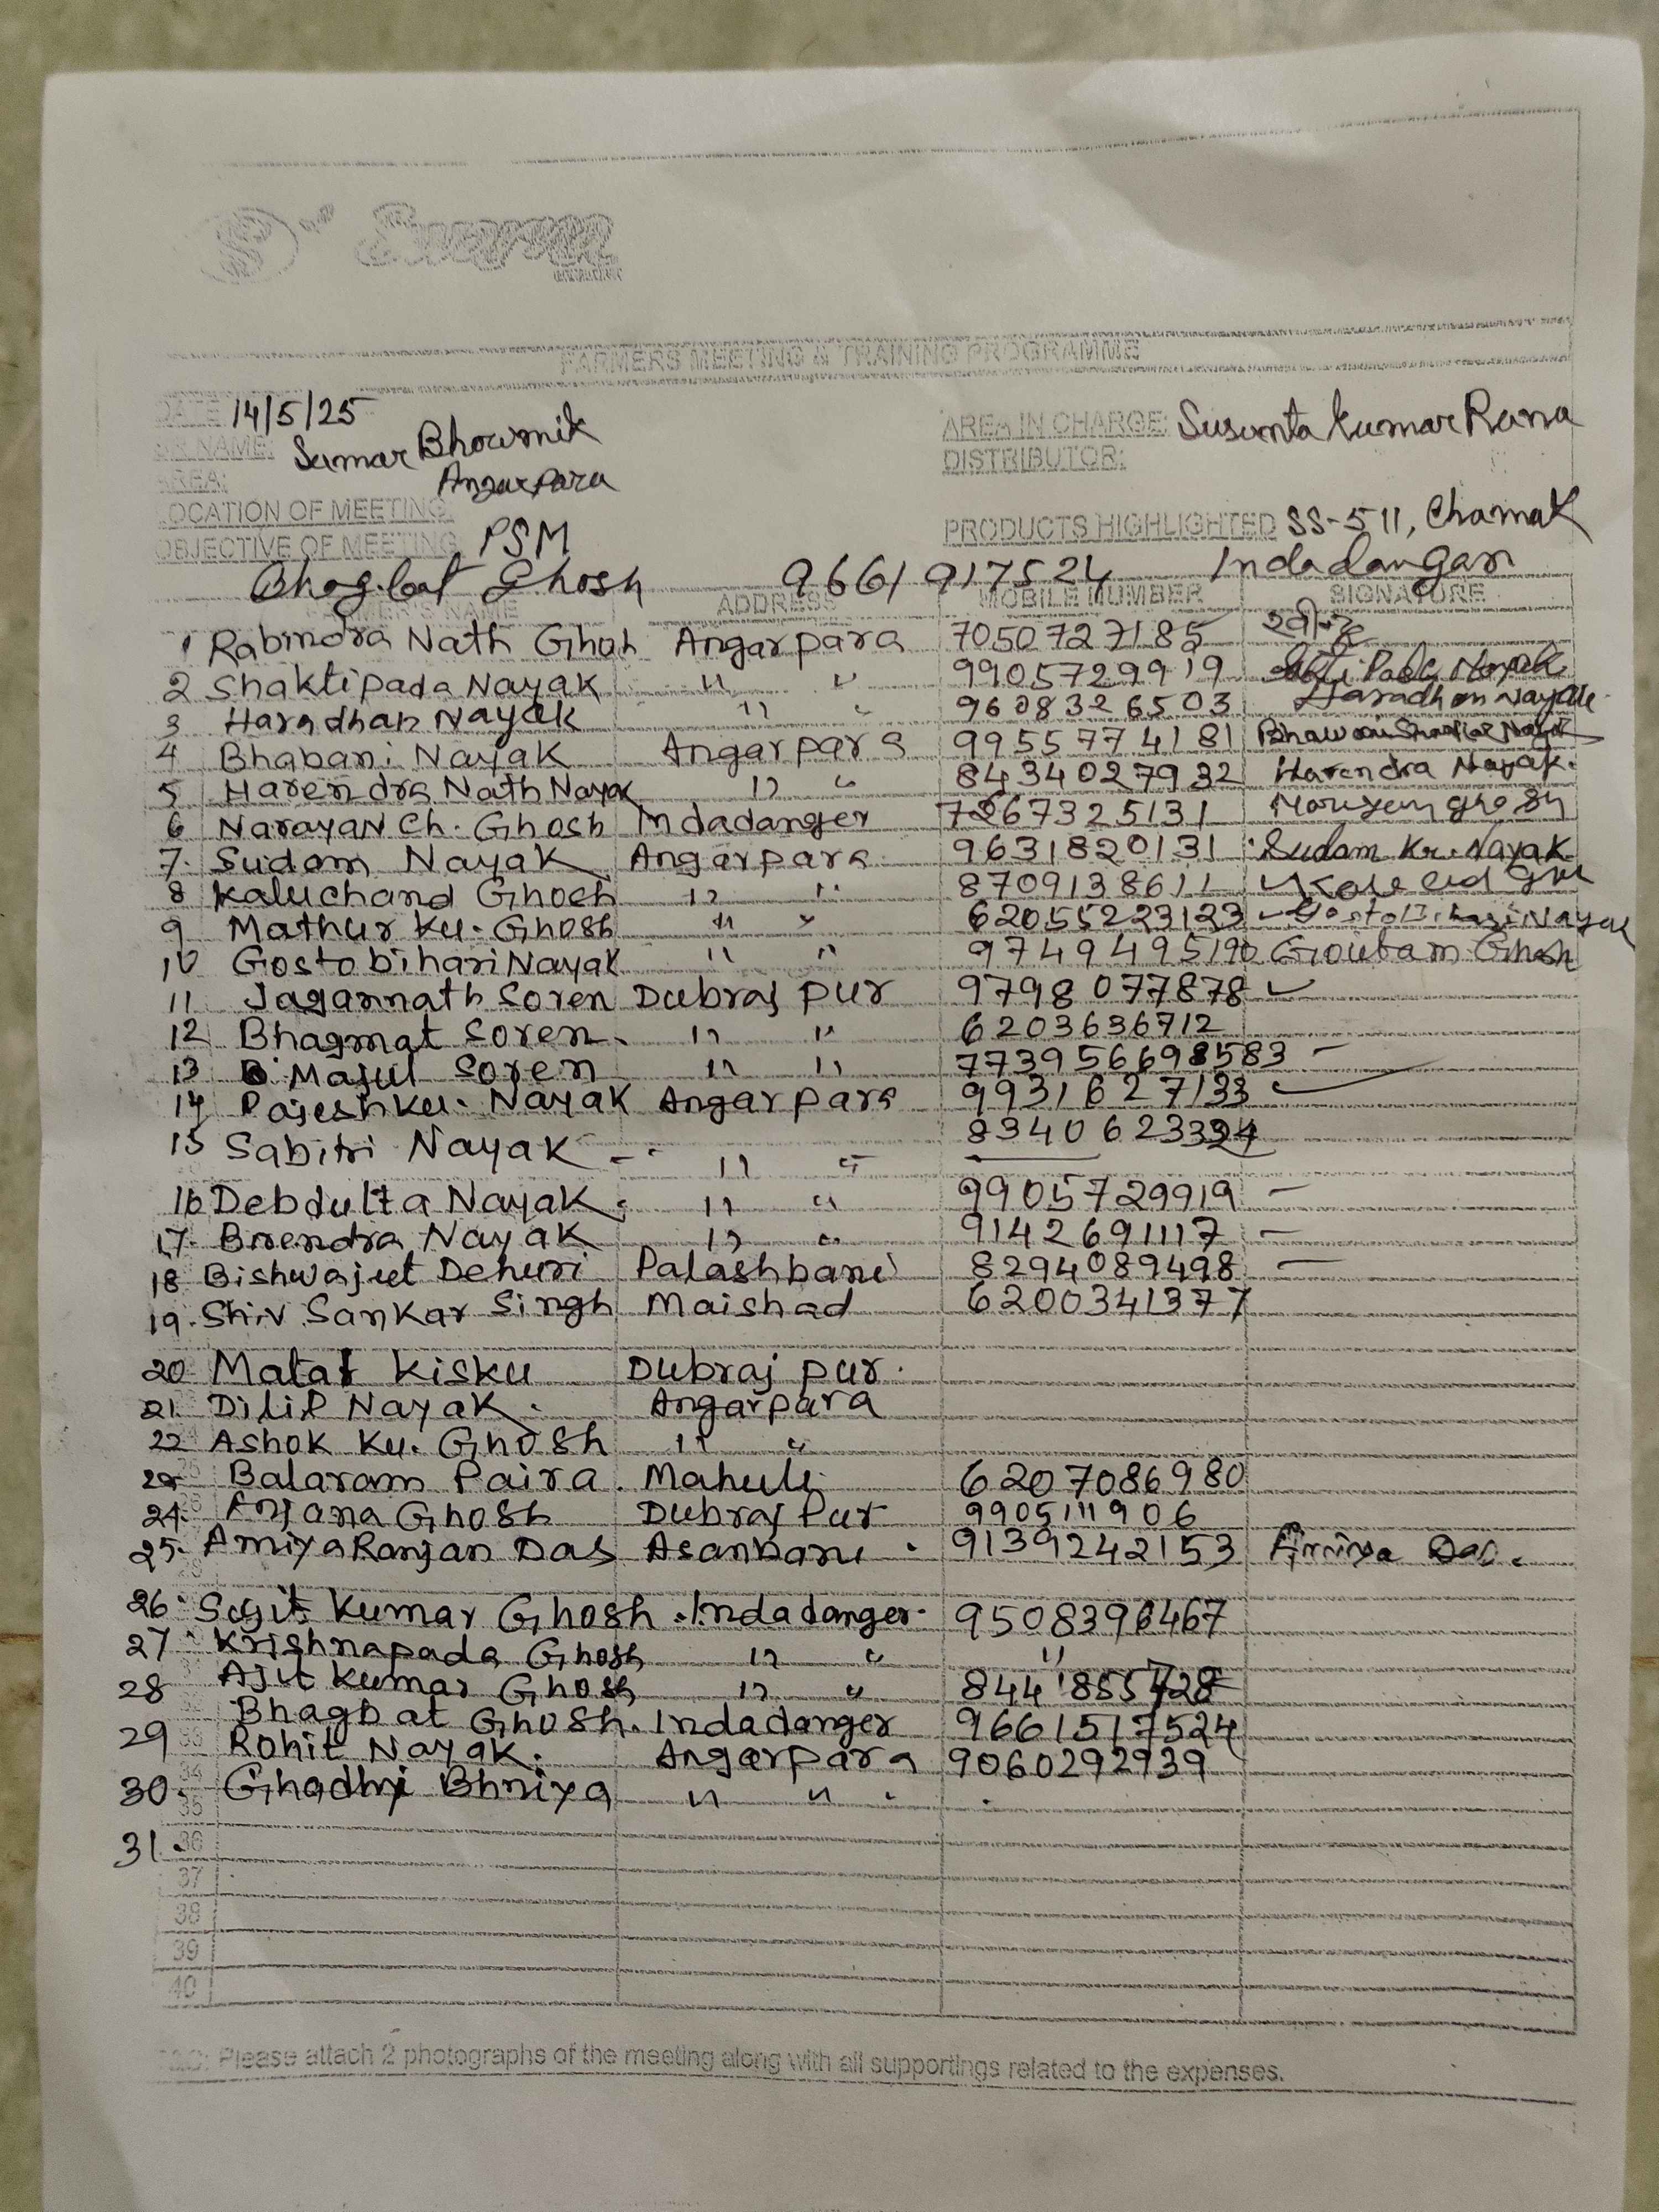 FARMERS MEETING & TRAINING PROGRAMME
DATE 14/5/25
AREA IN CHARGE: Susunta Kumar Rana
NAME: Sumar Bhowmik
DISTRIBUTOR:
AREA: Angarpara
LOCATION OF MEETING:
PRODUCTS HIGHLIGHTED SS-511, Chamak
OBJECTIVE OF MEETING PSM
Bhagbat Ghosh 9661917524 Indadangar
FARMER'S NAME ADDRESS MOBILE NUMBER SIGNATURE
1 Rabindra Nath Ghosh Angarpara 7050727185
2 Shaktipada Nayak " " 9905729919
3 Haradhan Nayak " " 9608326503 Haradhan Nayak
4 Bhabani Nayak Angarpara 9955774181
5 Harendra Nath Nayak " " 8434027932 Harendra Nayak.
6 Narayan Ch. Ghosh Indadanger 7267325131
7. Sudam Nayak Angarpara 9631820131 Sudam Kr. Nayak
8 Kaluchand Ghosh " " 8709138611
9 Mathur Ku. Ghosh " " 62055223123
10 Gostobihari Nayak " " Goutam Ghosh
11 Jagannath Soren Dubraj pur 9798077878
12 Bhagmat Soren. " " 6203636712
13 Majul Soren " "
14 Rajesh Ku. Nayak Angarpara 9931627133
15 Sabitri Nayak " "
16 Debdutta Nayak. " " 9905729919
17. Birendra Nayak " " 9142691117
18 Bishwajeet Dehuri Palashbani 8294089498
19. Shiv Sankar Singh Maishad 6200341377
20 Matat Kisku Dubraj pur.
21. Dilip Nayak. Angarpara
22 Ashok Ku. Ghosh " "
Balaram Paira. Mahuli 6207086980
24. Anjana Ghosh Dubraj Pur 9905111906
25. Amiya Ranjan Das Asanbani. 9139242153 Amiya Das.
26. Sujit Kumar Ghosh. Indadanger. 9508396467
27. Krishnapada Ghosh " " "
28 Ajit Kumar Ghosh " "
Bhagbat Ghosh. Indadanger 9661517524
29 Rohit Nayak. Angarpara 9060292939
30. " " .
31. 36
37
38
39
40
Please attach 2 photographs of the meeting along with all supportings related to the expenses.